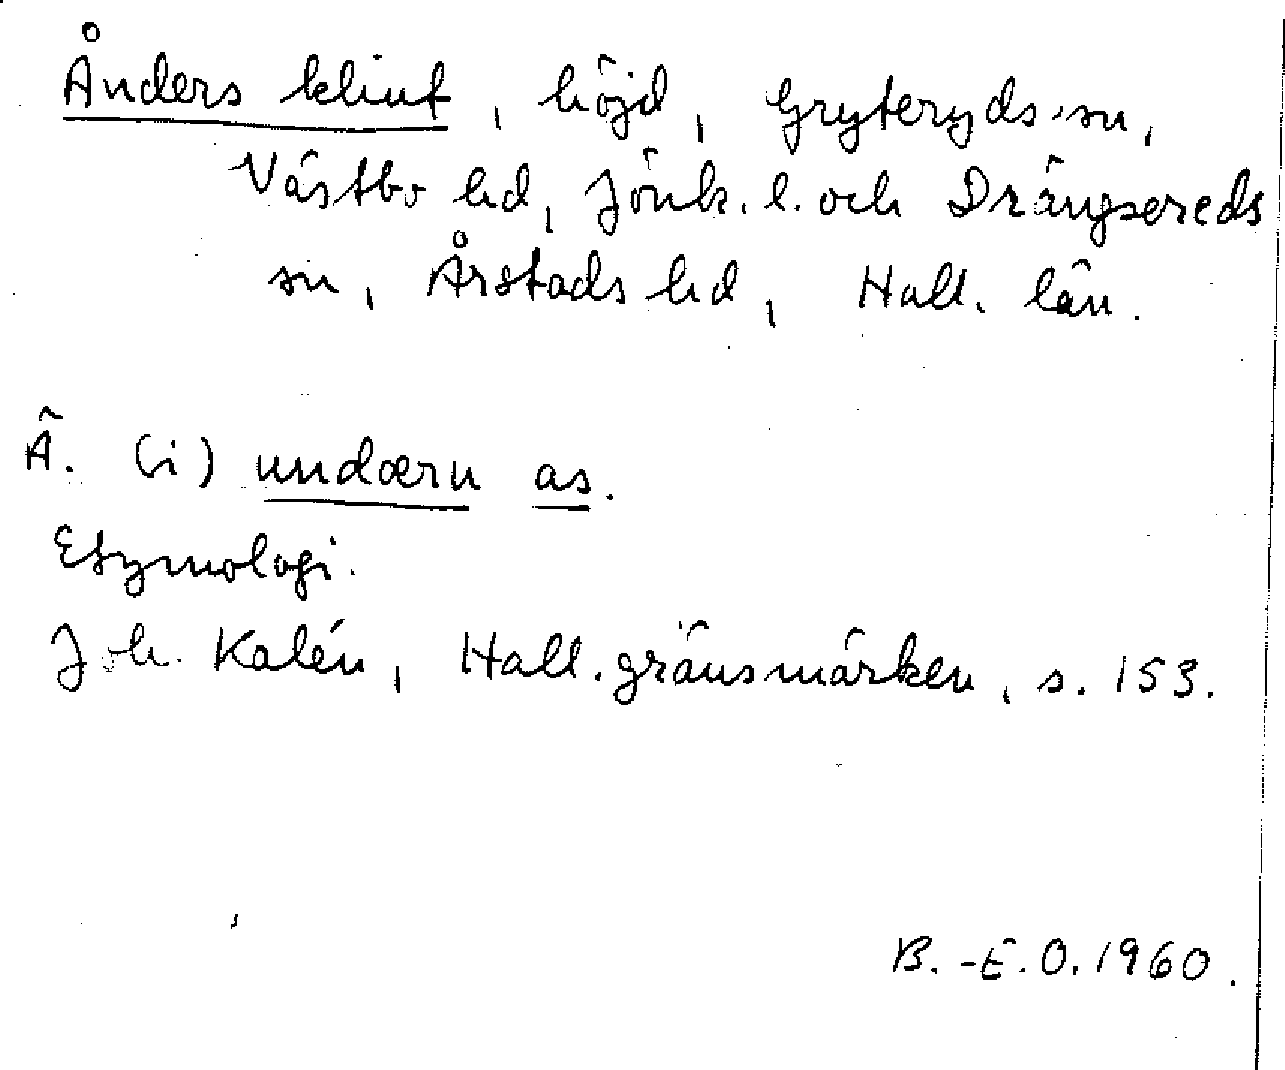 Ånders klint, höjd, Gryteryds sn,
Västbo hd, Jönk. l. och Drängsereds
sn, Årstads hd, Hall. län.
Ä. (i) undærn as.
Etymologi.
Joh. Kalén, Hall. gränsmärken, s. 153.
B.-E.O. 1960.